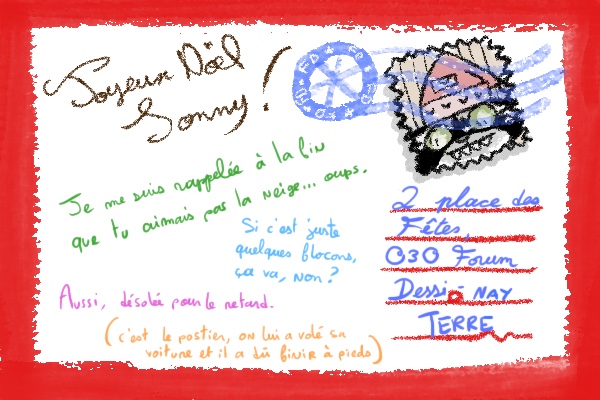 Joyeux Noël
Sonny !
Je me suis rappelée à la fin
que tu aimais pas la neige... oups.
Si c'est juste
quelques flocons,
ça va, non ?
Aussi, désolée pour le retard.
(c'est le postier, on lui a volé sa
voiture et il a dû finir à pieds)
FD ★ FD ★ FD ★ FD
2 place des
Fêtes,
030 Forum
Dessi-nay
TERRE